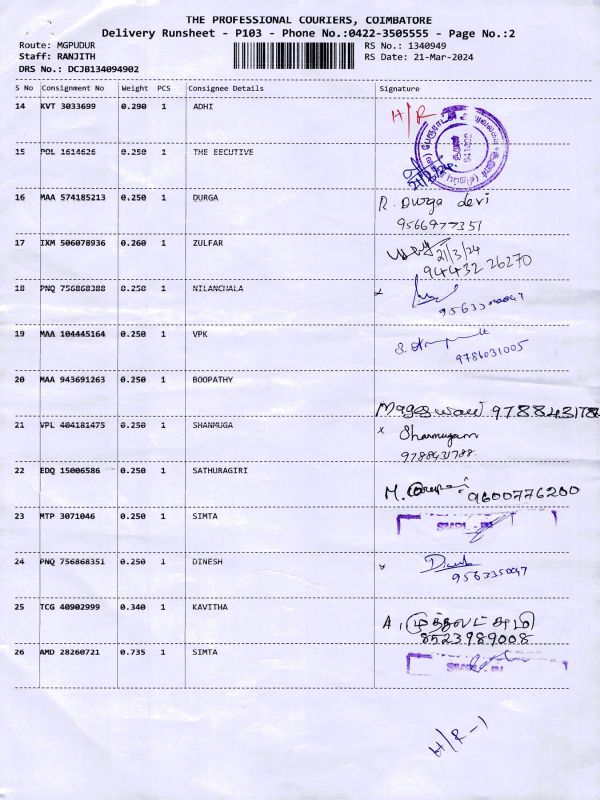 THE PROFESSIONAL COURIERS, COIMBATORE
Delivery Runsheet - P103 - Phone No.:0422-3505555 - Page No.:2
Route: MGPUDUR
RS No.: 1340949
Staff: RANJITH
RS Date: 21-Mar-2024
DRS No.: DCJB134094902
S No Consignment No Weight PCS Consignee Details Signature
14 KVT 3033699 0.290 1 ADHI H/R
15 POL 1614626 0.250 1 THE EECUTIVE
16 MAA 574185213 0.250 1 DURGA R. Durga devi
9566977351
17 IXM 506078936 0.260 1 ZULFAR 21/3/24
94432 26270
18 PNQ 756868388 0.250 1 NILANCHALA x
19 MAA 104445164 0.250 1 VPK
9786031005
20 MAA 943691263 0.250 1 BOOPATHY
9788431788
21 VPL 404181475 0.250 1 SHANMUGA x Shanmugam
9788431788
22 EDQ 15006586 0.250 1 SATHURAGIRI M.
9600776200
23 MTP 3071046 0.250 1 SIMTA
24 PNQ 756868351 0.250 1 DINESH x
25 TCG 40902999 0.340 1 KAVITHA A. முத்துலட்சுமி
8523989008
26 AMD 28260721 0.735 1 SIMTA
H/R-1